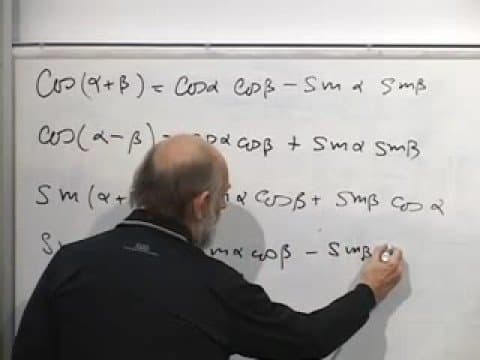 Cos(α+β) = Cosα Cosβ - Sin α Sinβ
Cos(α-β) = Cosα Cosβ + Sinα Sinβ
Sin(α+ α Cosβ + Sinβ Cos α
S inα Cosβ - Sinβ